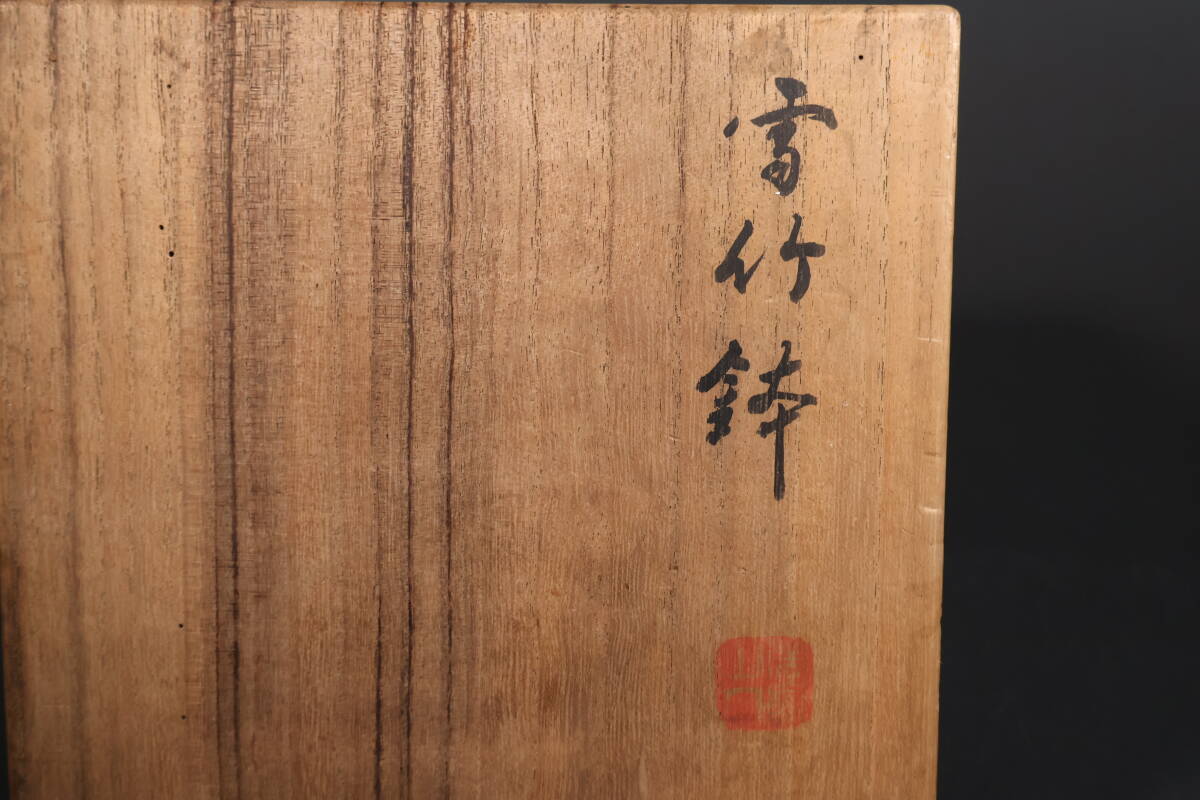 雪竹鉢